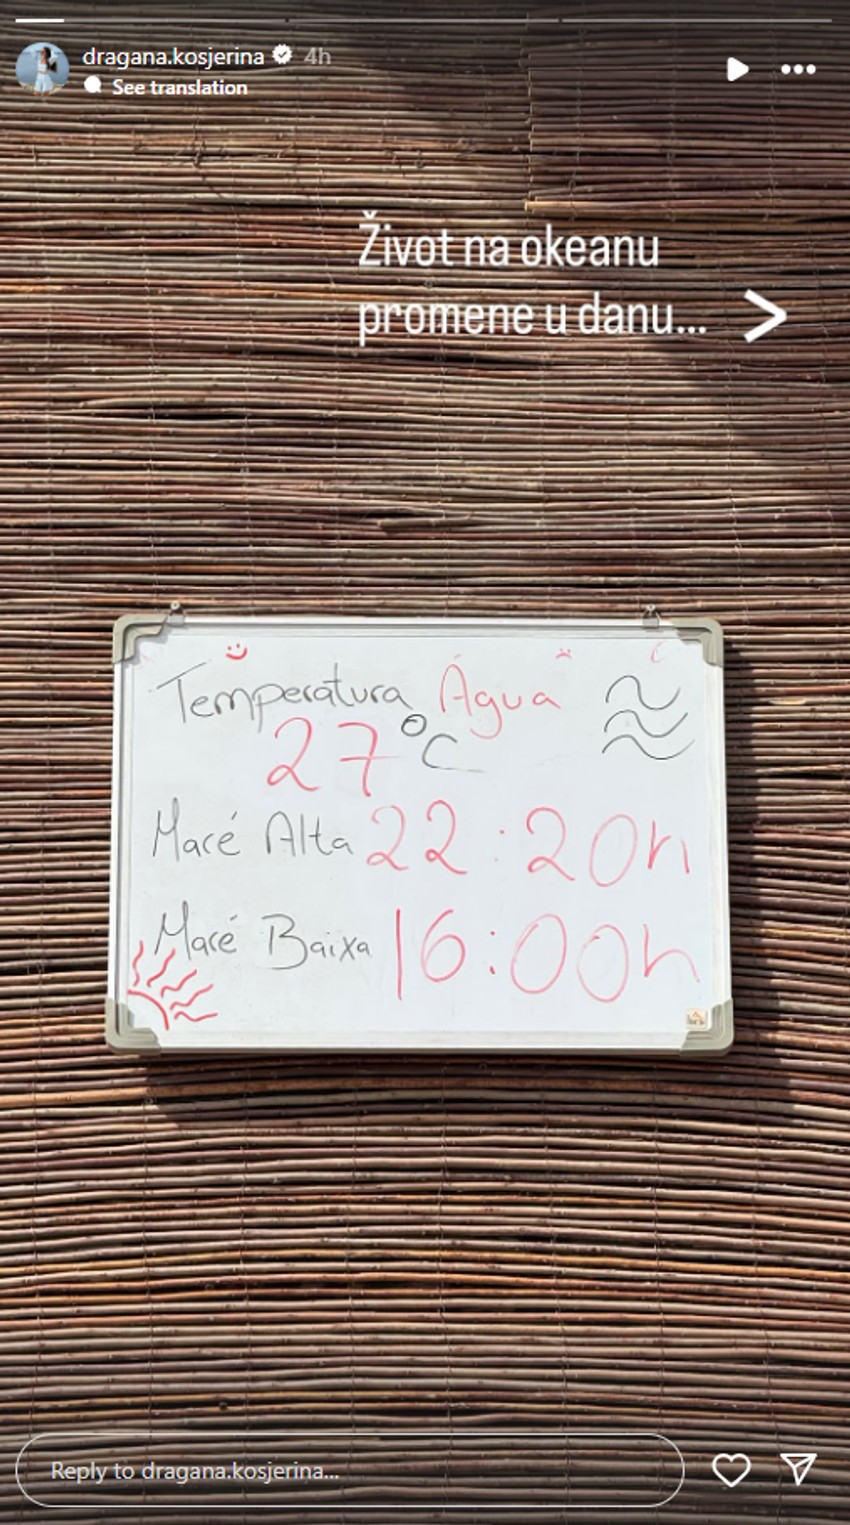 dragana.kosjerina 4h
See translation
Život na okeanu
promene u danu... >
Temperatura Água
27°C
Maré Alta 22:20h
Maré Baixa 16:00h
Reply to dragana.kosjerina...